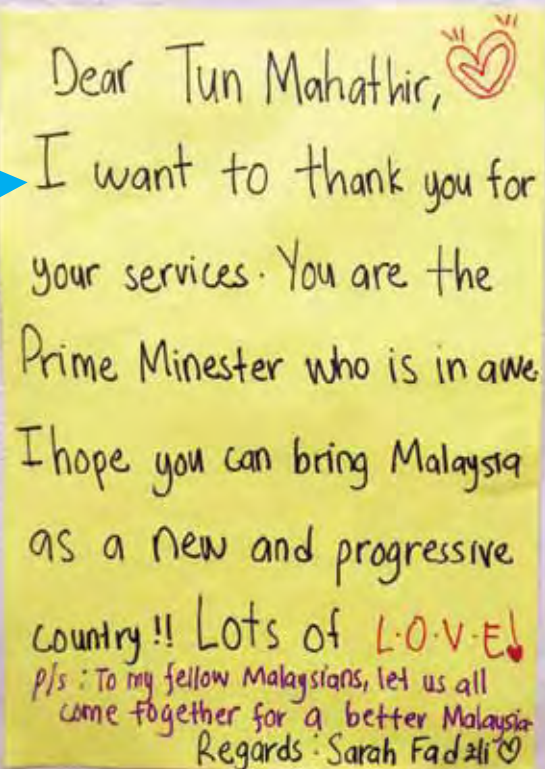 Dear Tun Mahathir,
I want to thank you for
your services. You are the
Prime Minester who is in awe
I hope you can bring Malaysia
as a new and progressive
country!! Lots of L.O.V.E!
p/s : To my fellow Malaysians, let us all
come together for a better Malaysia
Regards : Sarah Fadzli